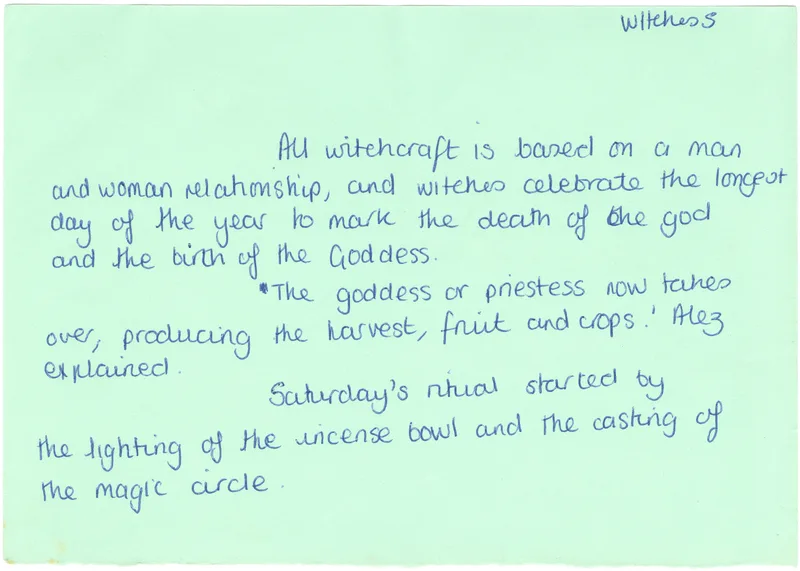 witches 5
All witchcraft is based on a man
and woman relationship, and witches celebrate the longest
day of the year to mark the death of the god
and the birth of the Goddess.
"The goddess or priestess now takes
over, producing the harvest, fruit and crops.' Alex
explained.
Saturday's ritual started by
the lighting of the incense bowl and the casting of
the magic circle.